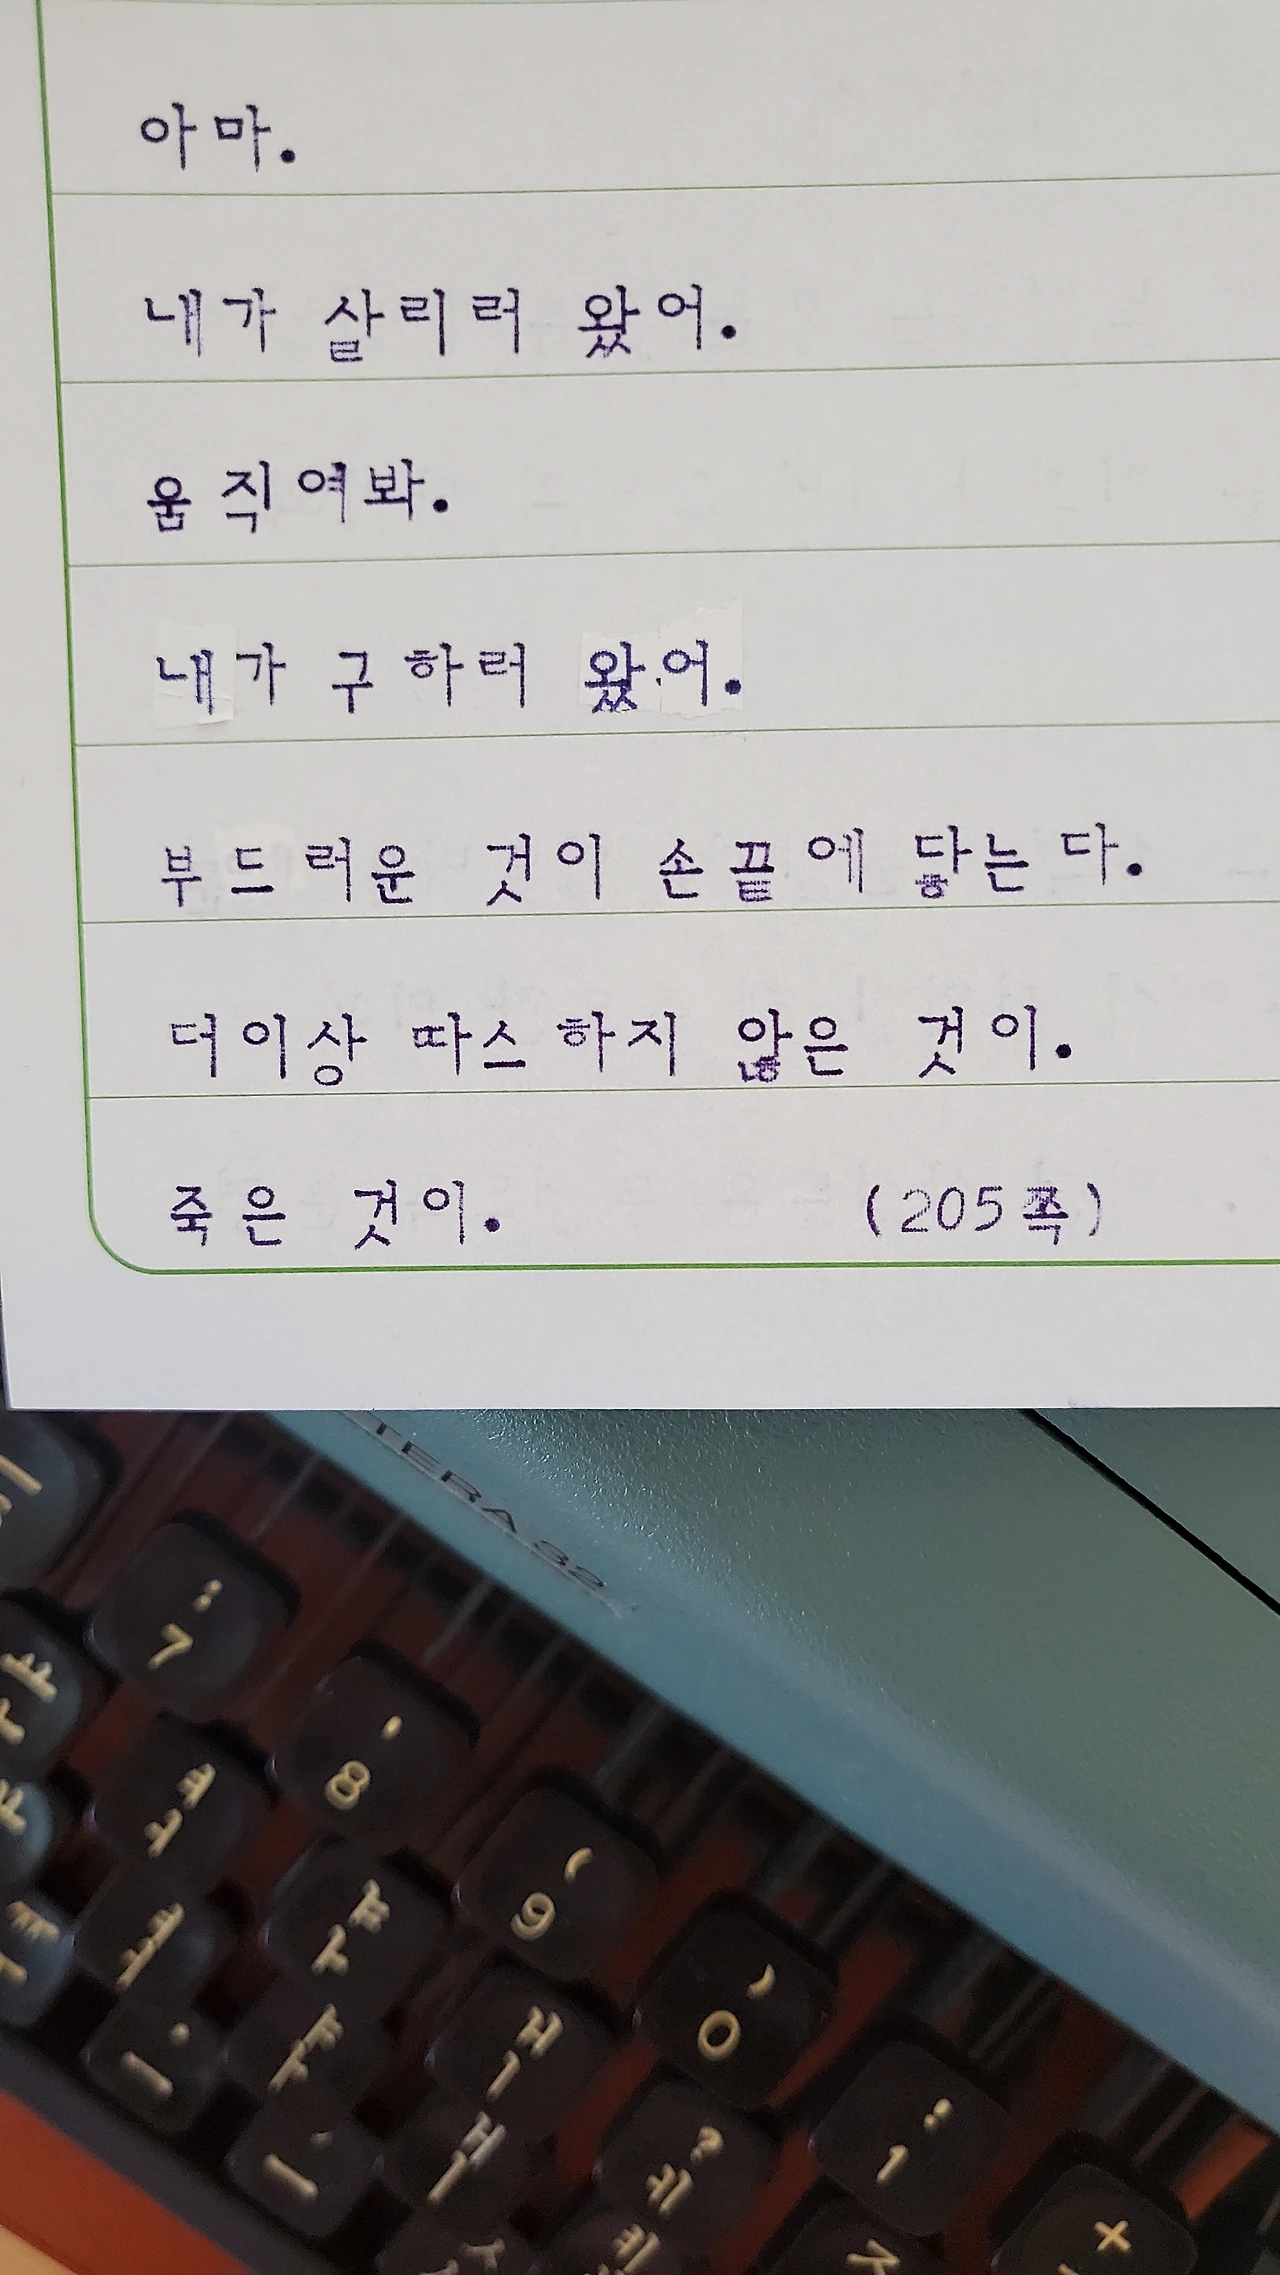 아마.
내가 살리러 왔어.
움직여봐.
내가 구하러 왔어.
부드러운 것이 손끝에 닿는다.
더이상 따스하지 않은 것이.
죽은 것이.    (205쪽)
TERA 32
7
8
9
0
1
+